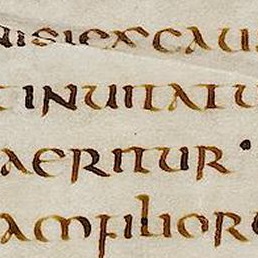 nisiexcaus
tinuitatu
aeritur·
amfilioru